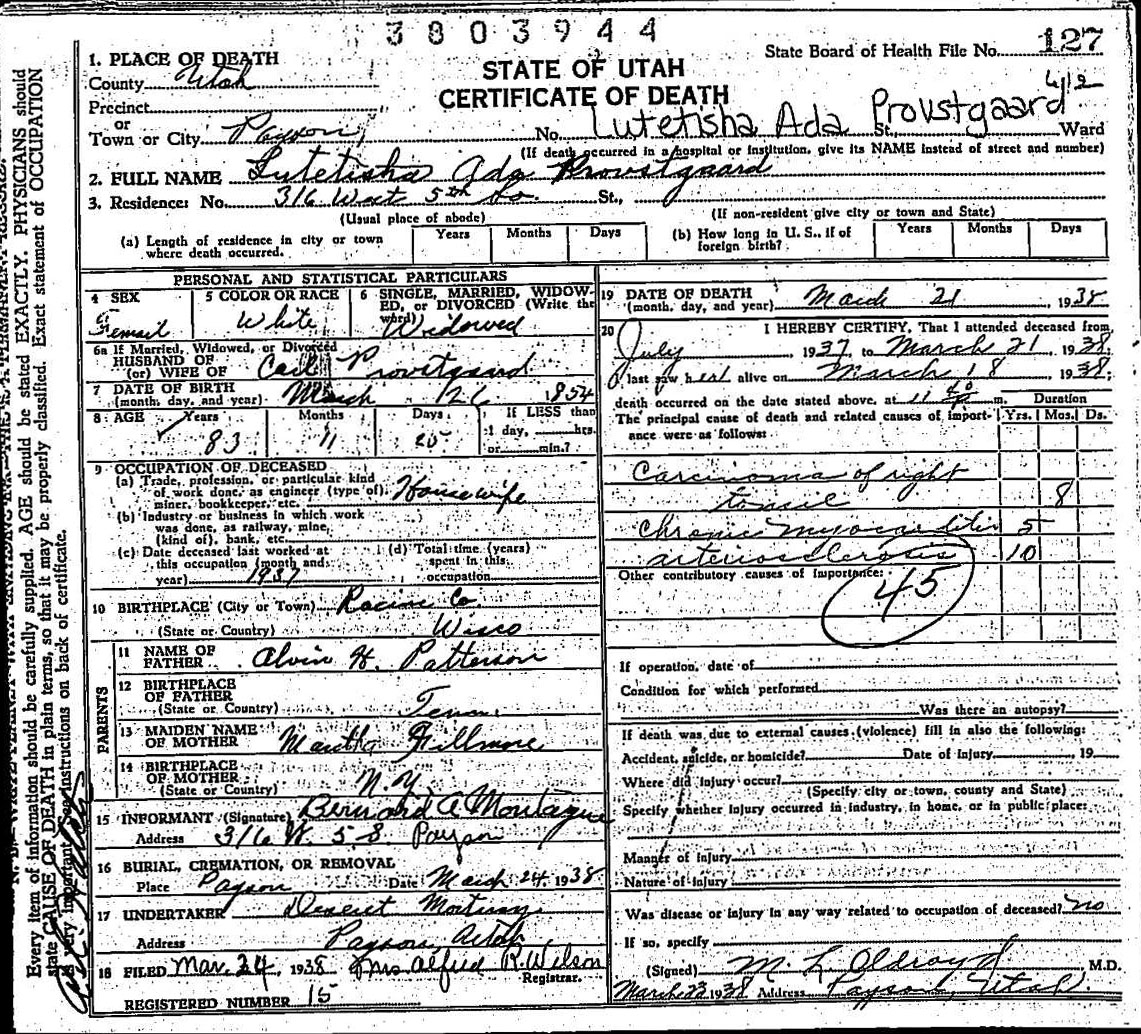 3803944
State Board of Health File No. 127
1. PLACE OF DEATH
County Utah
STATE OF UTAH
CERTIFICATE OF DEATH
Precinct
or
Town or City Payson, No. Lutetisha Ada Provstgaard St., Ward
(If death occurred in a hospital or institution, give its NAME instead of street and number)
2. FULL NAME Lutetisha Ada Provstgaard
3. Residence: No. 316 West 5th So. St.,
(Usual place of abode) (If non-resident give city or town and State)
(a) Length of residence in city or town where death occurred. Years Months Days
(b) How long in U. S., if of foreign birth? Years Months Days
PERSONAL AND STATISTICAL PARTICULARS
4 SEX Femail
5 COLOR OR RACE White
6 SINGLE, MARRIED, WIDOWED, OR DIVORCED (Write the word) Widowed
6a If Married, Widowed, or Divorced
HUSBAND OF
(or) WIFE OF Carl Provstgaard
7 DATE OF BIRTH
(month, day, and year) March 26 1854
8 AGE Years 83 Months 11 Days 25 If LESS than 1 day, hrs. or min.?
9 OCCUPATION OF DECEASED
(a) Trade, profession, or particular kind of work done, as engineer (type of), miner, bookkeeper, etc. Housewife
(b) Industry or business in which work was done, as railway, mine, (kind of), bank, etc.
(c) Date deceased last worked at this occupation (month and year) 1937
(d) Total time (years) spent in this occupation
10 BIRTHPLACE (City or Town) Racine Co
(State or Country) Wisco
PARENTS
11 NAME OF FATHER Alvin H. Patterson
12 BIRTHPLACE OF FATHER
(State or Country) Tenn.
13 MAIDEN NAME OF MOTHER Martha Fillmore
14 BIRTHPLACE OF MOTHER
(State or Country) N.Y.
15 INFORMANT (Signature) Bernard A Montague
Address 316 W. 5 S. Payson
16 BURIAL, CREMATION, OR REMOVAL
Place Payson Date March 24, 1938
17 UNDERTAKER Deseret Mortuary
Address Payson, Utah
18 FILED Mar. 24, 1938 Mrs Alfred R. Wilson
Registrar.
REGISTERED NUMBER 15
19 DATE OF DEATH
(month, day, and year) March 21, 1938
20 I HEREBY CERTIFY, That I attended deceased from
July 1937, to March 21, 1938.
I last saw her alive on March 18 1938.
death occurred on the date stated above, at 11 m. Duration
The principal cause of death and related causes of importance were as follows: Yrs. Mos. Ds.
Carcinoma of right
tonsil 8
Chronic myocarditis 5
arteriosclerosis 10
Other contributory causes of importance:
45
If operation, date of
Condition for which performed
Was there an autopsy?
If death was due to external causes (violence) fill in also the following:
Accident, suicide, or homicide? Date of Injury 19
Where did injury occur?
(Specify city or town, county and State)
Specify whether injury occurred in industry, in home, or in public place:
Manner of Injury
Nature of Injury
Was disease or injury in any way related to occupation of deceased? no
If so, specify
(Signed) M. L. Oldroyd M.D.
March 23, 1938 Address Payson, Utah.
Every item of information should be carefully supplied. AGE should be stated EXACTLY. PHYSICIANS should
state CAUSE OF DEATH in plain terms, so that it may be properly classified. Exact statement of OCCUPATION
is very important. See instructions on back of certificate.